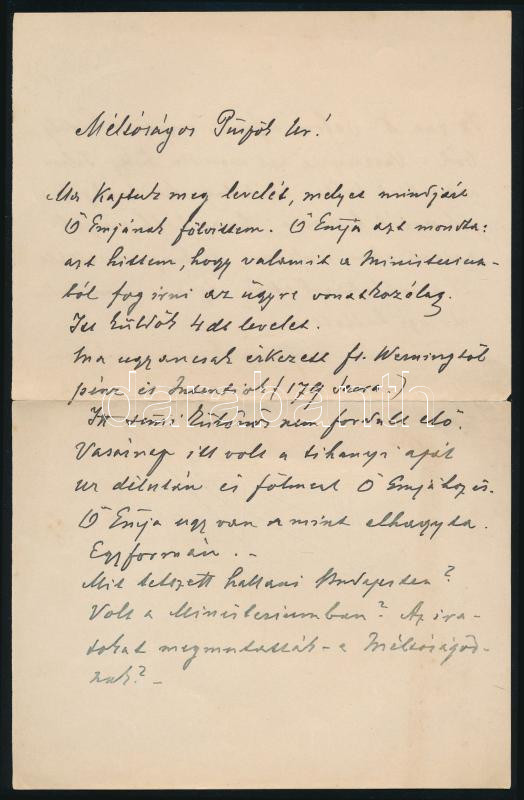 Méltóságos Püspök Ur!
Ma kaptuk meg levelét, melyet mindjárt
Ő Emjának fölvittem. Ő Emja azt mondta:
azt hittem, hogy valamit a Ministerium-
ból fog irni az ügyre vonatkozólag.
Itt küldök 4 dt levelet.
Ma ugyancsak érkezett
pénz és Intentiók (179 szent .)
Itt semi különös nem fordult elő.
Vasárnap itt volt a tihanyi apát
ur délután és fölment Ő Emjához is.
Ő Emja ugy van a mint elhagyta.
Egyformán. –
Mit tetszett hallani Budapesten?
Volt a Ministeriumban? Az ira-
tokat megmutatták a Méltóságod-
nak? –
darabanth